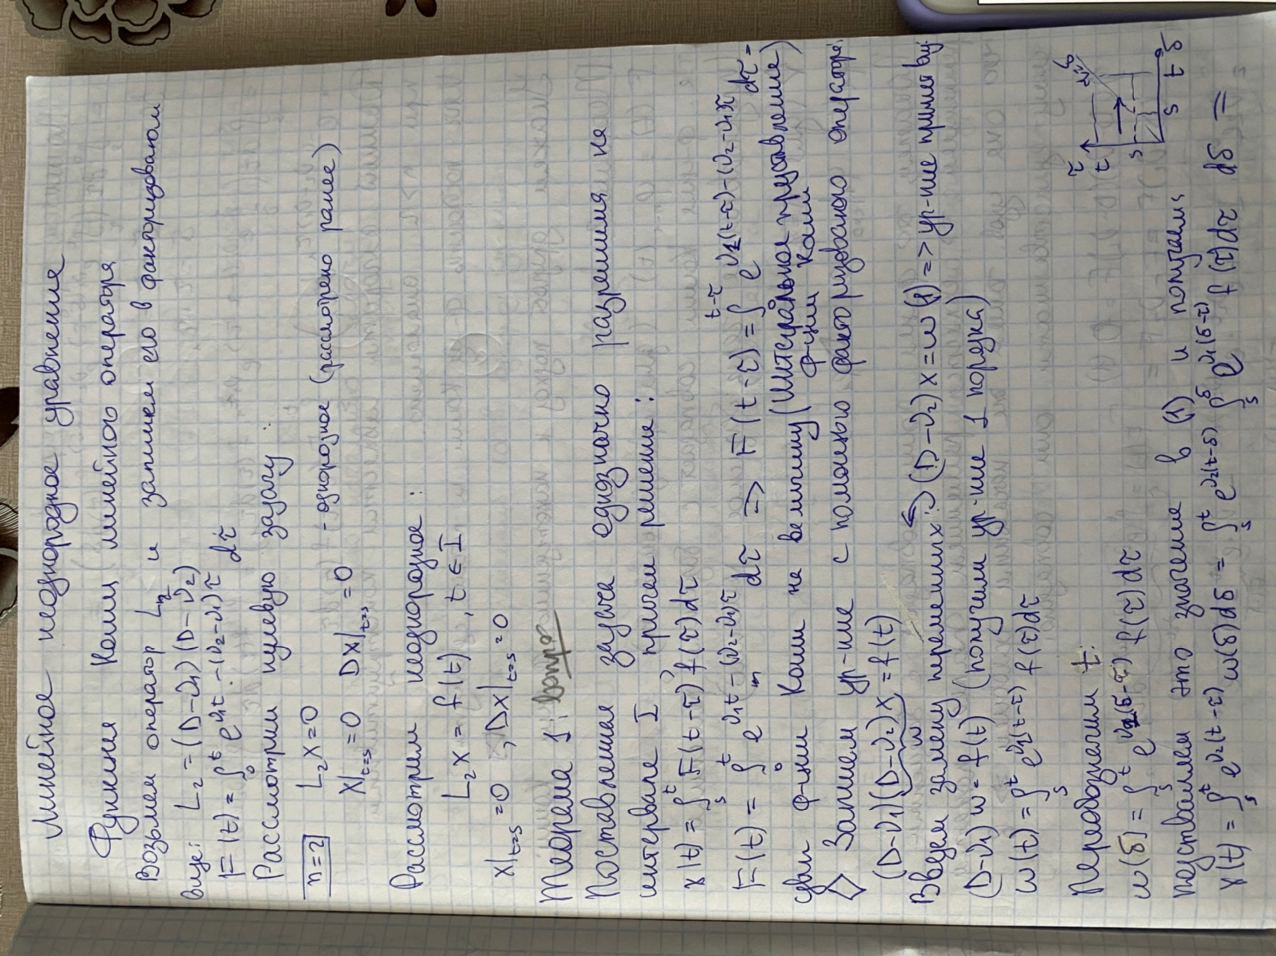 Линейное неоднородное уравнение
Функция Коши линейного оператора
Возьмем оператор L₂ и запишем его в факторизованом
виде: L₂ = (D-ν₁)(D-ν₂)
F(t) = ∫₀ᵗ e^{ν₁t-(ν₂-ν₁)τ} dτ
Рассмотрим нулевую задачу:
n=2 L₂x=0 - однородное (рассмотрено ранее)
x|t=s =0 Dx|t=s =0
Рассмотрим неоднородное:
L₂x = f(t), t∈I
x|t=s =0, Dx|t=s =0
Теорема 1:
Поставленная задача однозначно разрешима на
интервале I причем решение:
x(t) = ∫ₛᵗ F(t-τ) f(τ)dτ
F(t) = ∫₀ᵗ e^{ν₁t-(ν₂-ν₁)τ} dτ => F(t-τ) = ∫₀^{t-τ} e^{ν₁(t-τ)-(ν₂-ν₁)τ} dτ -
сдвиг ф-ции Коши на величину (Интегральное представление ф-ции Коши)
◊ Запишем ур-ние с помощью факторизованого оператора
(D-ν₁)(D-ν₂)x = f(t)
w
Введем замену переменных => (D-ν₂)x = w (1) => ур-ние примет вид:
(D-ν₁)w = f(t) (получили ур-ние 1 порядка)
w(t) = ∫ₛᵗ e^{ν₁(t-τ)} f(τ)dτ
τ t s τ=δ s t δ
Переобозначим t:
w(δ) = ∫ₛᵗ e^{ν₁(δ-τ)} f(τ)dτ
подставляем это значение в (1) и получаем
x(t) = ∫ₛᵗ e^{ν₂(t-τ)} w(δ)dδ = ∫ₛᵗ e^{ν₂(t-δ)} ∫ₛ^δ e^{ν₁(δ-τ)} f(τ)dτ dδ =